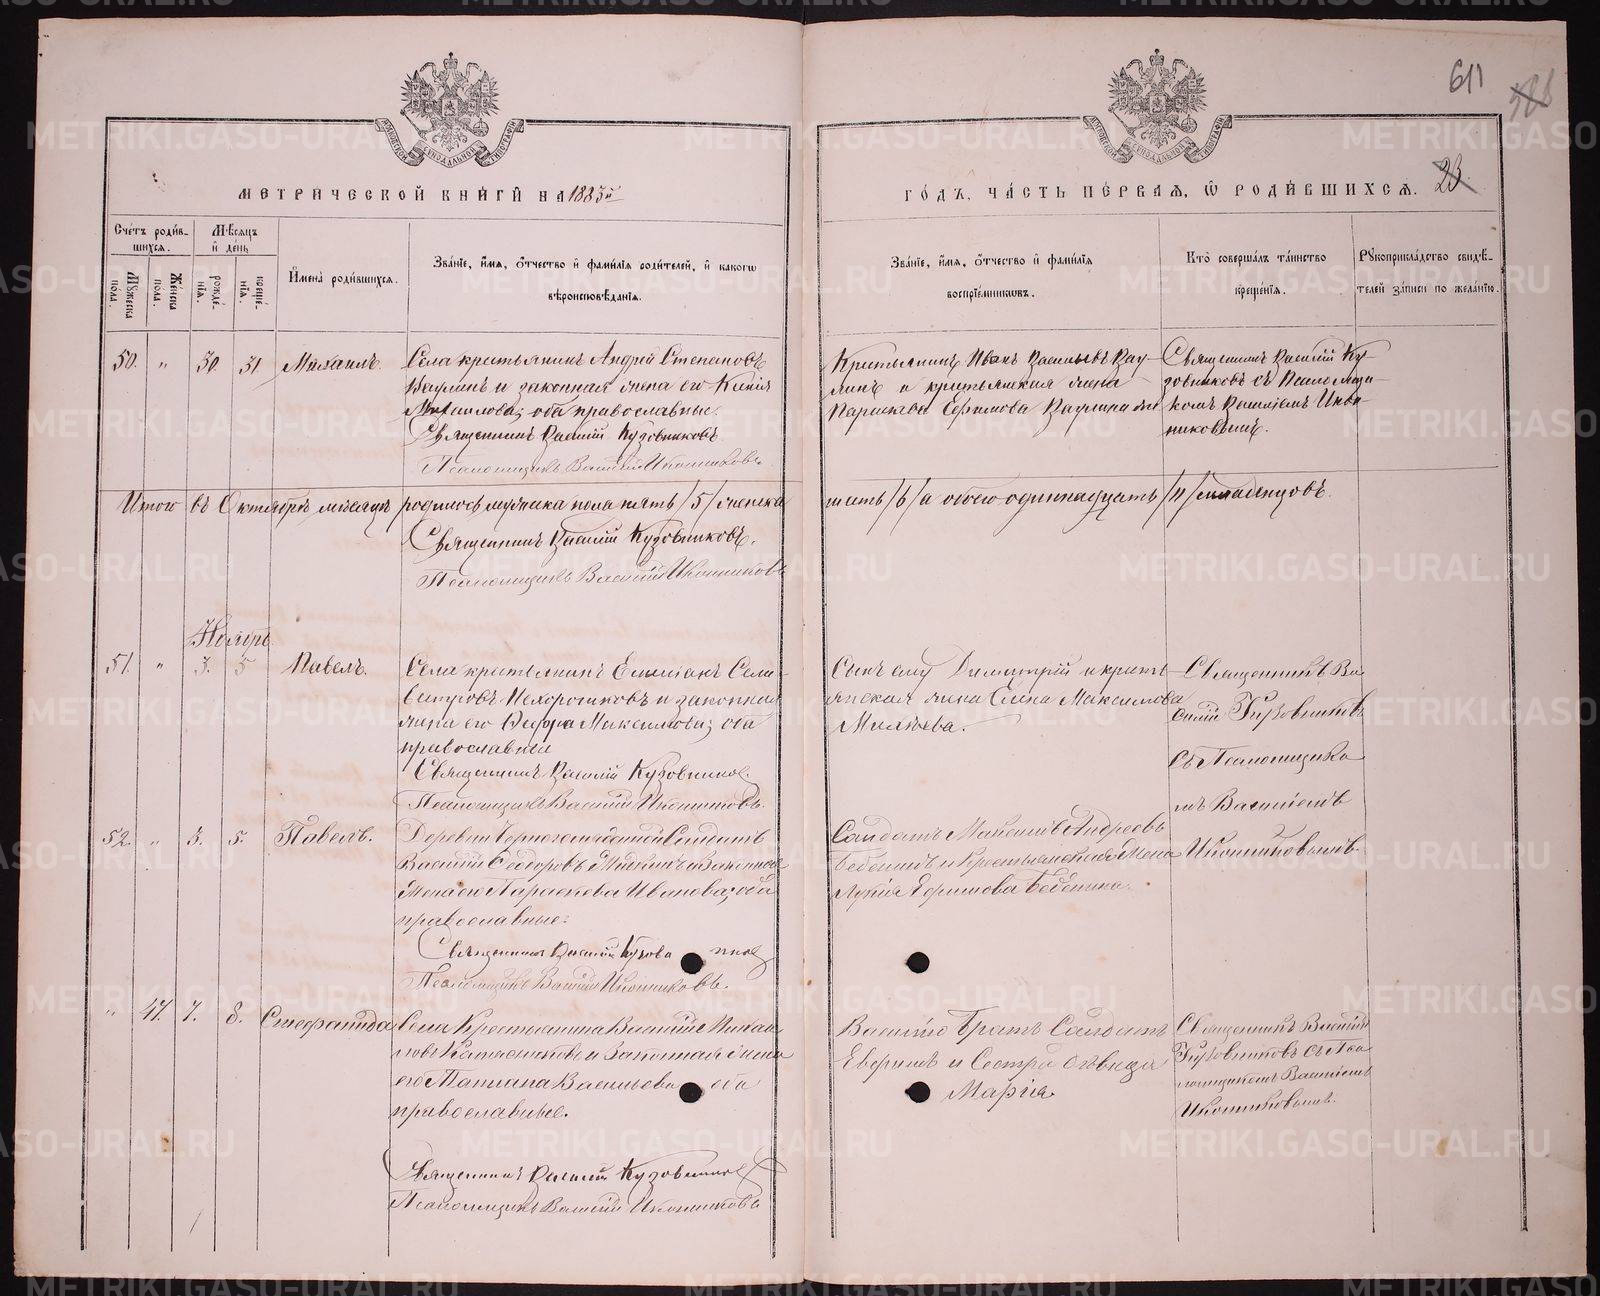 611
МЕТРИЧЕСКОЙ КНИГИ НА 1883й
ГОДЪ, ЧАСТЬ ПЕРВАЯ, Ѡ РОДИВШИХСЯ. 23
Счетъ родив-
шихся.
Мѣсяцъ
и день
Мужеска
пола.
Женска
пола.
рожде-
нія.
креще-
нія.
Имена родившихся.
Званіе, имя, отчество и фамилія родителей, и какого
вѣроисповѣданія.
Званіе, имя, отчество и фамилія
воспріемниковъ.
Кто совершалъ таинство
крещенія.
Рукоприкладство свидѣ-
телей записи по желанію.
50. " 30. 31 Михаилъ.
Села крестьянинъ Андрей Степановъ
Ваулинъ и законная жена его Ксенія
Михаилова; оба православные.
Священникъ Василій Кузовниковъ
Псаломщикъ Василій Иконниковъ.
Крестьянинъ Иванъ Васильевъ Вау-
линъ и крестьянская жена
Параскева Ефимова Ваулина
Священникъ Василій Ку-
зовниковъ съ Псаломщи-
комъ Василіемъ Икон-
никовымъ.
Итого въ Октябрѣ мѣсяцѣ родилось мужеска пола пять /5/ женска
шесть /6/ а обоего одиннадцать /11/ младенцовъ.
Священникъ Василій Кузовниковъ.
Псаломщикъ Василій Иконниковъ
Ноябрь
51. " 3. 5 Павелъ.
Села крестьянинъ Емиліанъ Сели-
верстовъ Нехорошковъ и законная
жена его Максимова; оба
православные
Священникъ Василій Кузовниковъ.
Псаломщикъ Василій Иконниковъ.
Сынъ ему Димитрій и кресть-
янская жена Елена Максимова
Священникъ Ва-
силій Кузовниковъ
съ Псаломщико
мъ Василіемъ
Иконниковымъ
52. " 3. 5. Павелъ.
Деревни Солдатъ
Василій Ѳедоровъ и Законная
Жена его Параскева Иванова; оба
православные.
Священникъ Василій Кузовниковъ
Псаломщикъ Василій Иконниковъ.
Солдатъ Андреевъ
и Крестьянская Жена
" 47. 7. 8. Стефанида
Села Крестьянинъ Василій Михаи
ловъ и Законная жена
его Татіана Васильева оба
православные.
Священникъ Василій Кузовниковъ
Псаломщикъ Василій Иконниковъ
Братъ Солдатъ
и Сестра
Марія.
Священникъ Василій
Кузовниковъ съ Пса
ломщикомъ Василіемъ
Иконниковымъ.